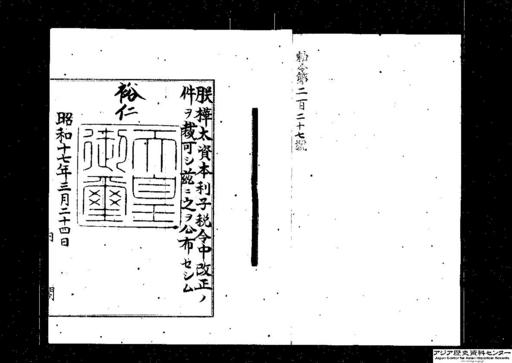 勅令第二百二十七號
朕樺太資本利子税令中改正ノ
件ヲ裁可シ茲ニ之ヲ公布セシム
裕仁
天皇
御璽
昭和十七年三月二十四日
内閣
アジア歴史資料センター
Japan Center for Asian Historical Records